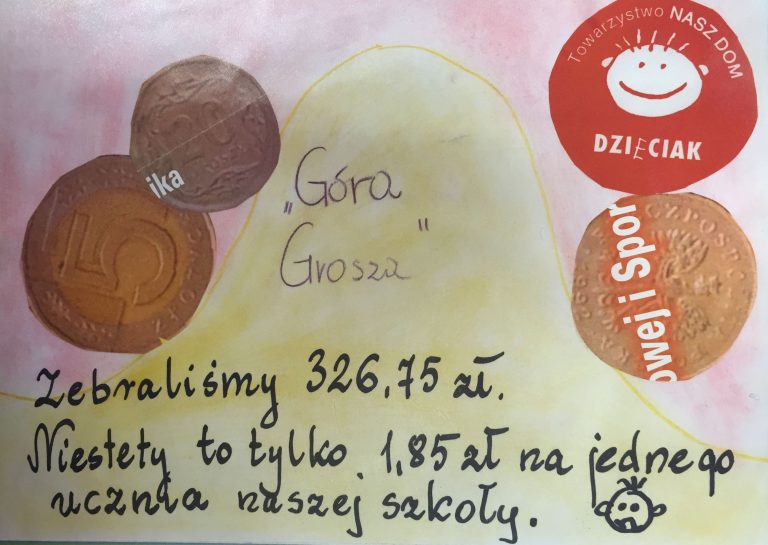 Towarzystwo NASZ DOM
DZIECIAK
ika
5
ZŁOTYCH
owej i Spor
„Góra
Grosza"
Zebraliśmy 326,75 zł.
Niestety to tylko 1,85 zł na jednego
ucznia naszej szkoły.